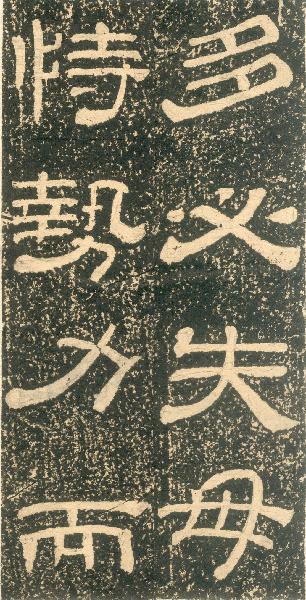 多必失毋
恃勢力而